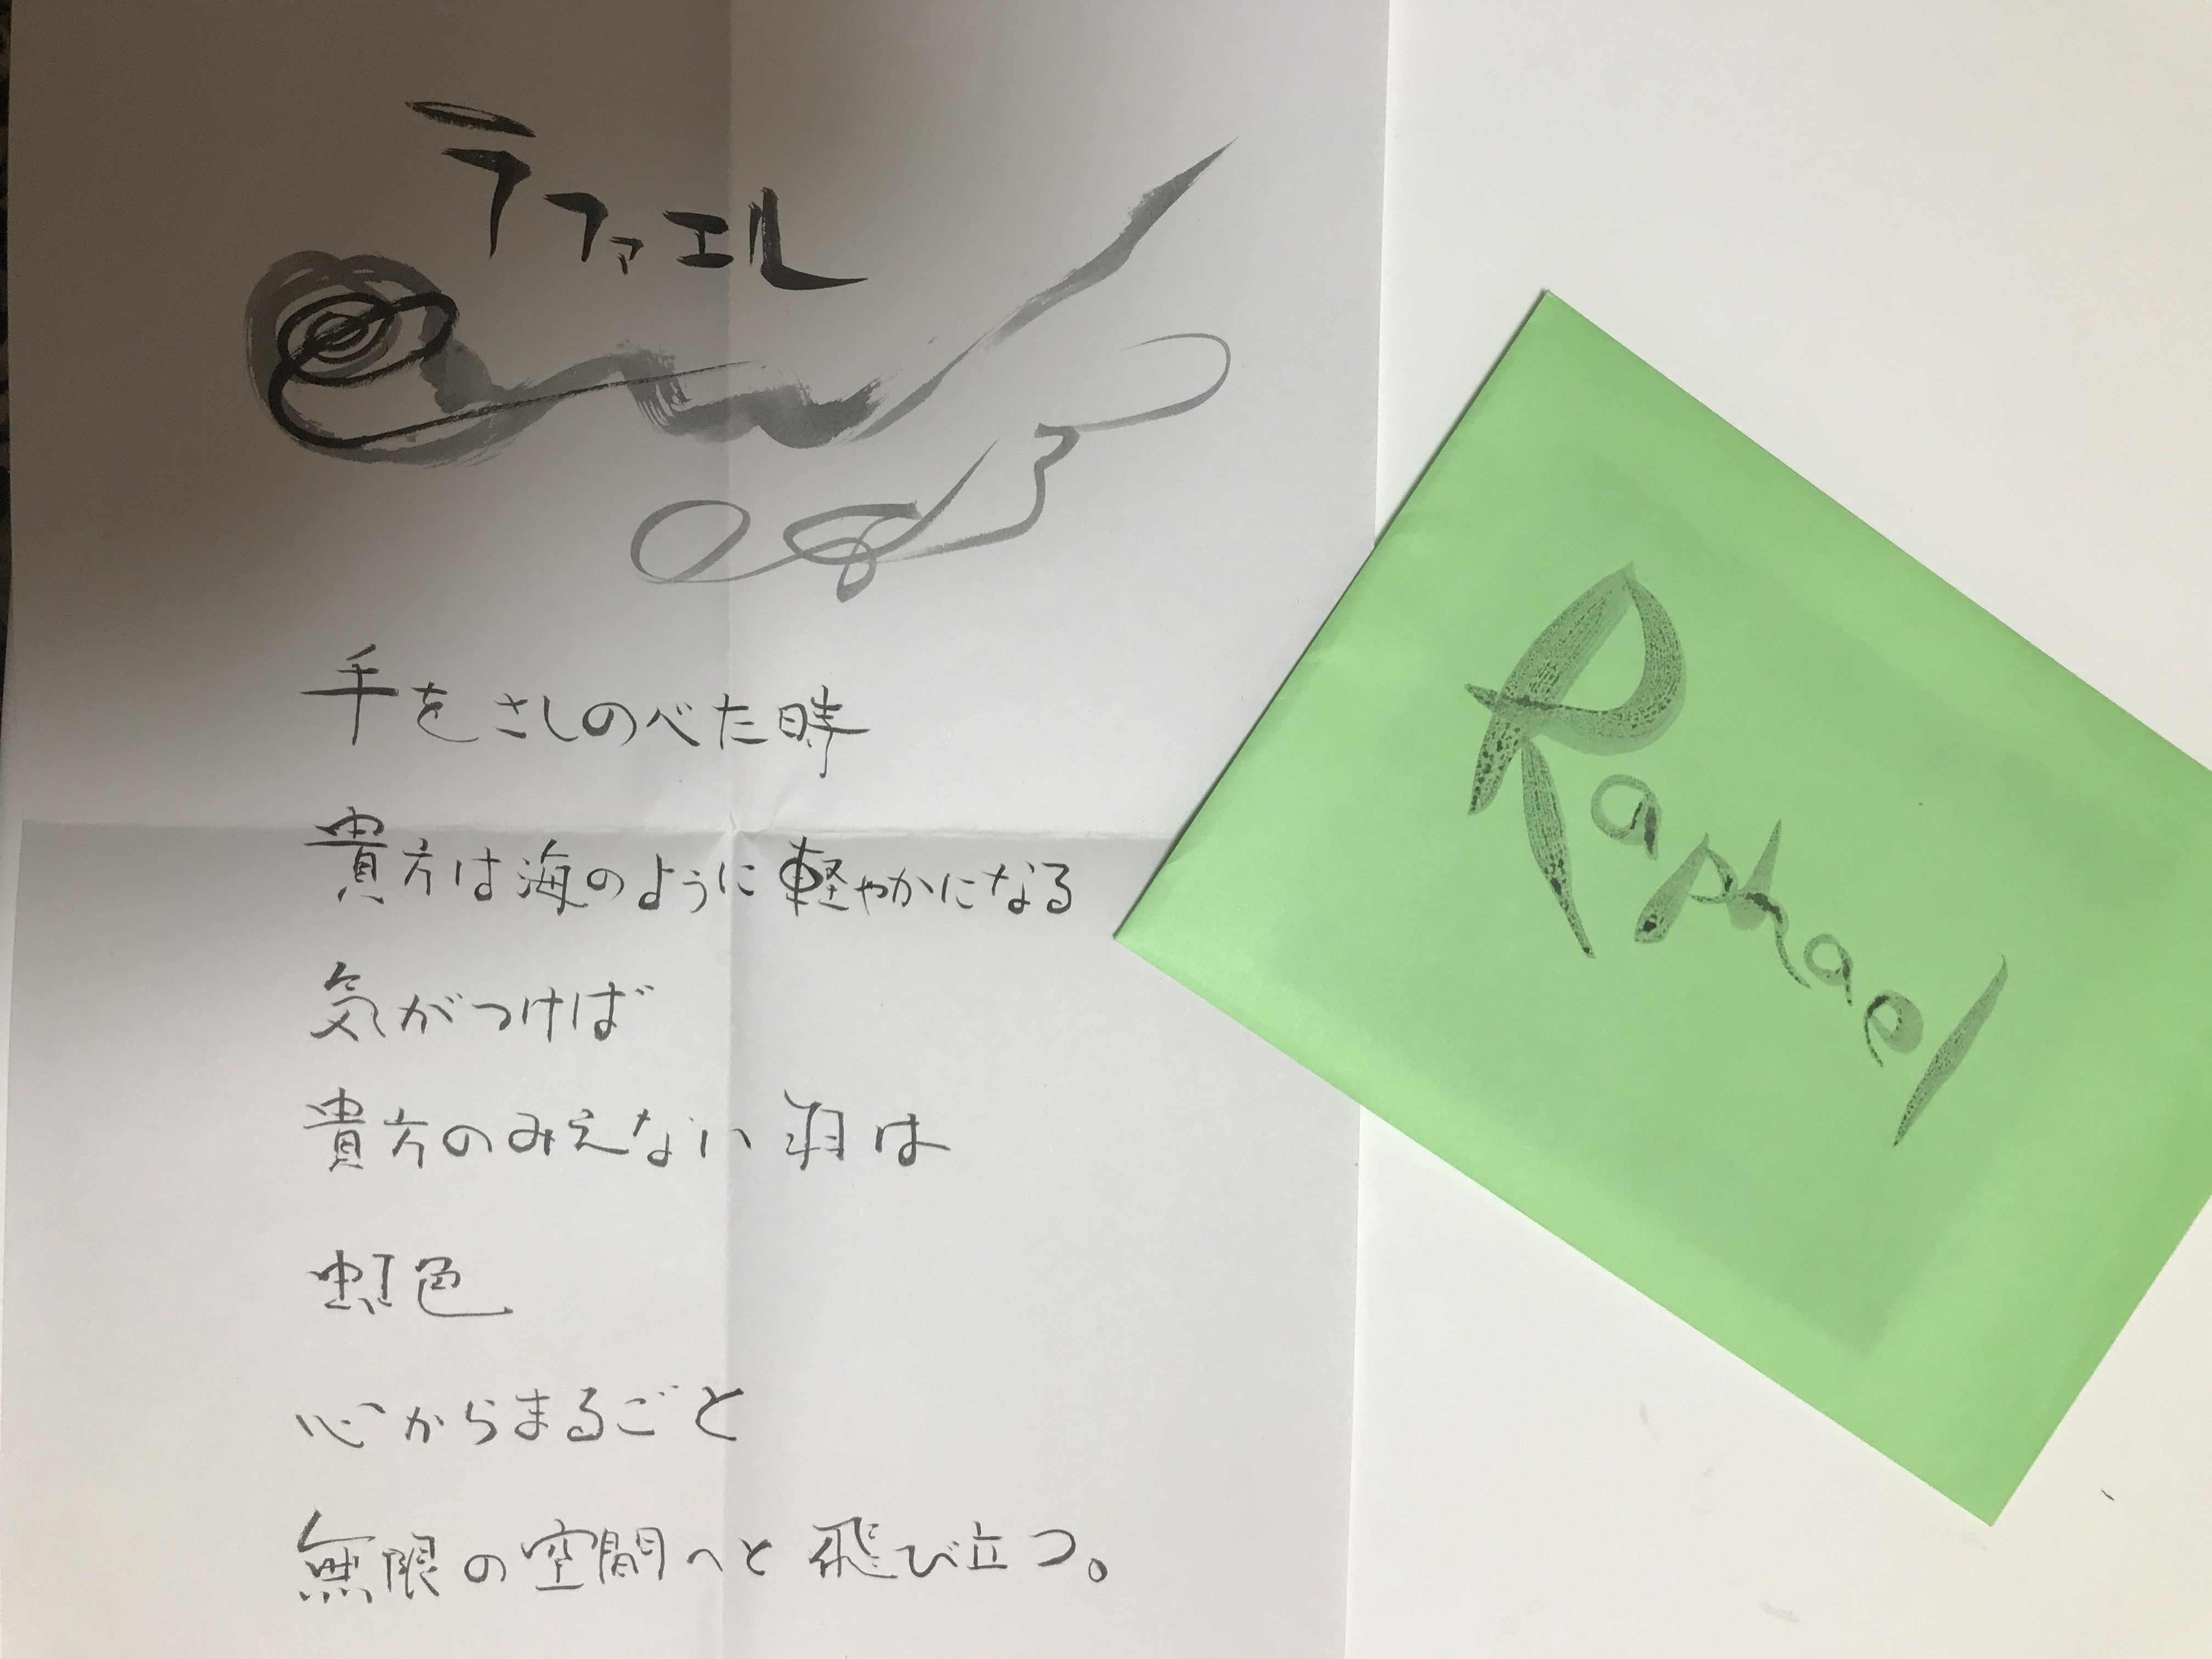 ラファエル
手をさしのべた時
貴方は海のように軽やかになる
気がつけば
貴方のみえない羽は
虹色
心からまるごと
無限の空間へと飛び立つ。
Raphael